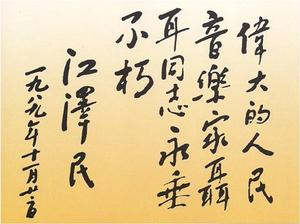 偉大的人民
音樂家聶
耳同志永垂
不朽
江澤民
一九八九年十一月廿日